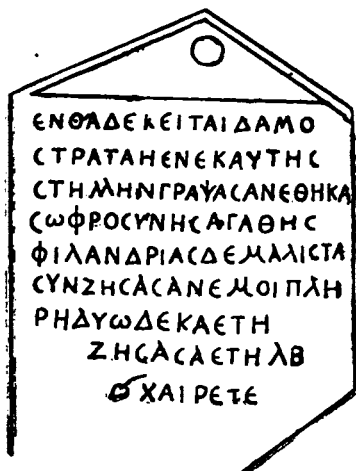 ΕΝΘΑΔΕΚΕΙΤΑΙΔΑΜΟ
ϹΤΡΑΤΑΗΕΝΕΚΑΥΤΗϹ
ϹΤΗΛΛΗΝΓΡΑΨΑϹΑΝΕΘΗΚΑ
ϹωΦΡΟϹΥΝΗϹΑΓΑΘΗϹ
ΦΙΛΑΝΔΡΙΑϹΔΕΜΑΛΙϹΤΑ
ϹΥΝΖΗϹΑϹΑΝΕΜΟΙΠΛΗ
ΡΗΔΥωΔΕΚΑΕΤΗ
ΖΗϹΑϹΑΕΤΗΛΒ
ΧΑΙΡΕΤΕ